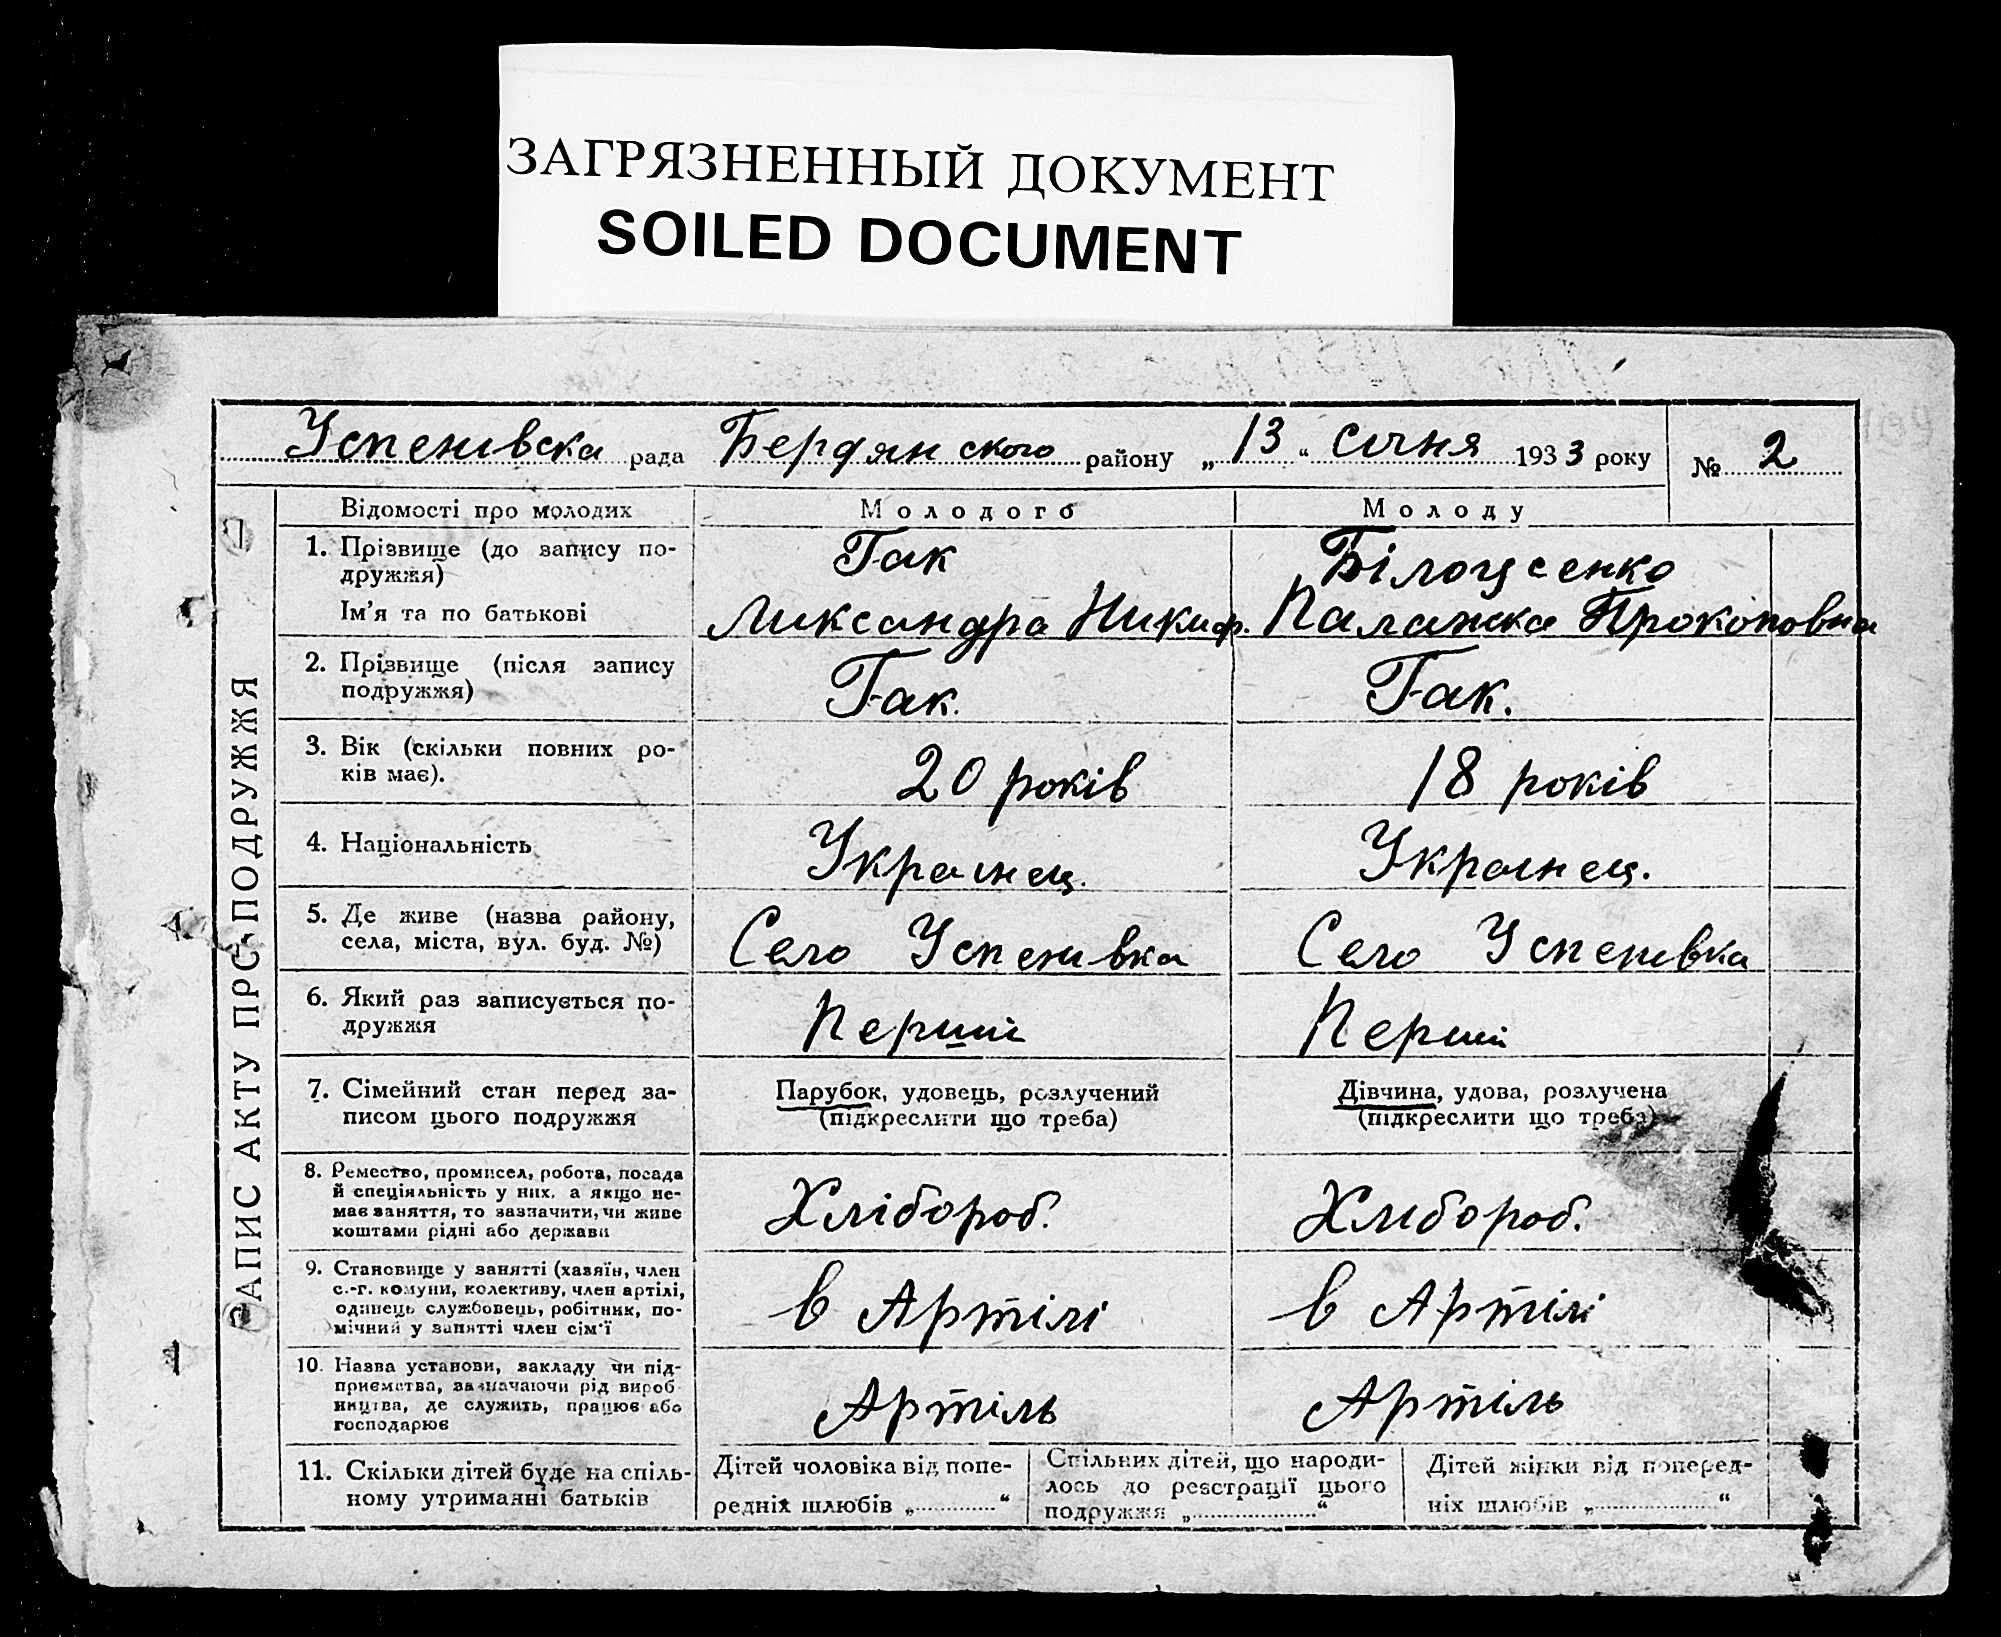 ЗАГРЯЗНЕННЫЙ ДОКУМЕНТ
SOILED DOCUMENT
Успенівска рада Бердянского району „13“ січня 1933 року № 2
ЗАПИС АКТУ ПРО ПОДРУЖЖЯ
Відомості про молодих Молодого Молоду
1. Прізвище (до запису по-
дружжя) Гак
Ім'я та по батькові Ликсандра Никиф. Палажка Прокоповна
2. Прізвище (після запису
подружжя) Гак. Гак.
3. Вік (скільки повних ро-
ків має). 20 років 18 років
4. Національність Украінец. Украінец.
5. Де живе (назва району,
села, міста, вул. буд. №) Село Успенівка Село Успенівка
6. Який раз записується по-
дружжя Перший Перший
7. Сімейний стан перед за-
писом цього подружжя
Парубок, удовець, розлучений
(підкреслити що треба)
Дівчина, удова, розлучена
(підкреслити що треба)
8. Ремество, промисел, робота, посада
й спеціяльність у них, а якщо не-
має заняття, то зазначити, чи живе
коштами рідні або держави
Хлібороб. Хлібороб.
9. Становище у занятті (хазяїн, член
с.-г. комуни, колективу, член артілі,
одинець службовець, робітник, по-
мічний у занятті член сім'ї
в Артілі в Артілі
10. Назва установи, закладу чи під-
приємства, зазначаючи рід вироб
ництва, де служить, працює або
господарює
Артіль Артіль
11. Скільки дітей буде на спіль-
ному утриманні батьків
Дітей чоловіка від попе-
редніх шлюбів „ “
Спільних дітей, що народи-
лось до реєстрації цього
подружжя „ “
Дітей жінки від поперед-
ніх шлюбів „ “